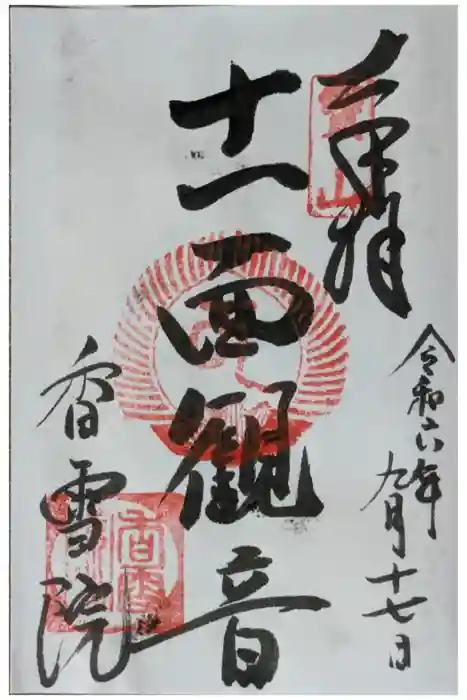 奉拝
令和六年九月十七日
十一面観音
香雪院